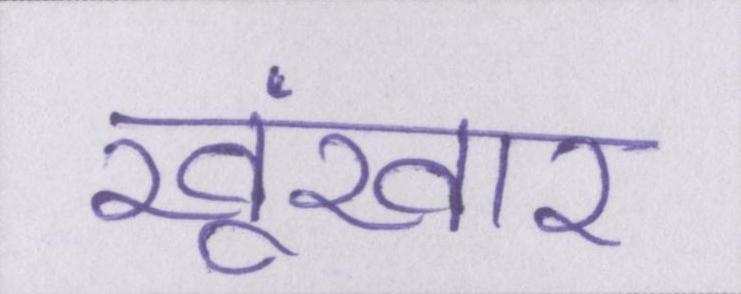 खूंखार